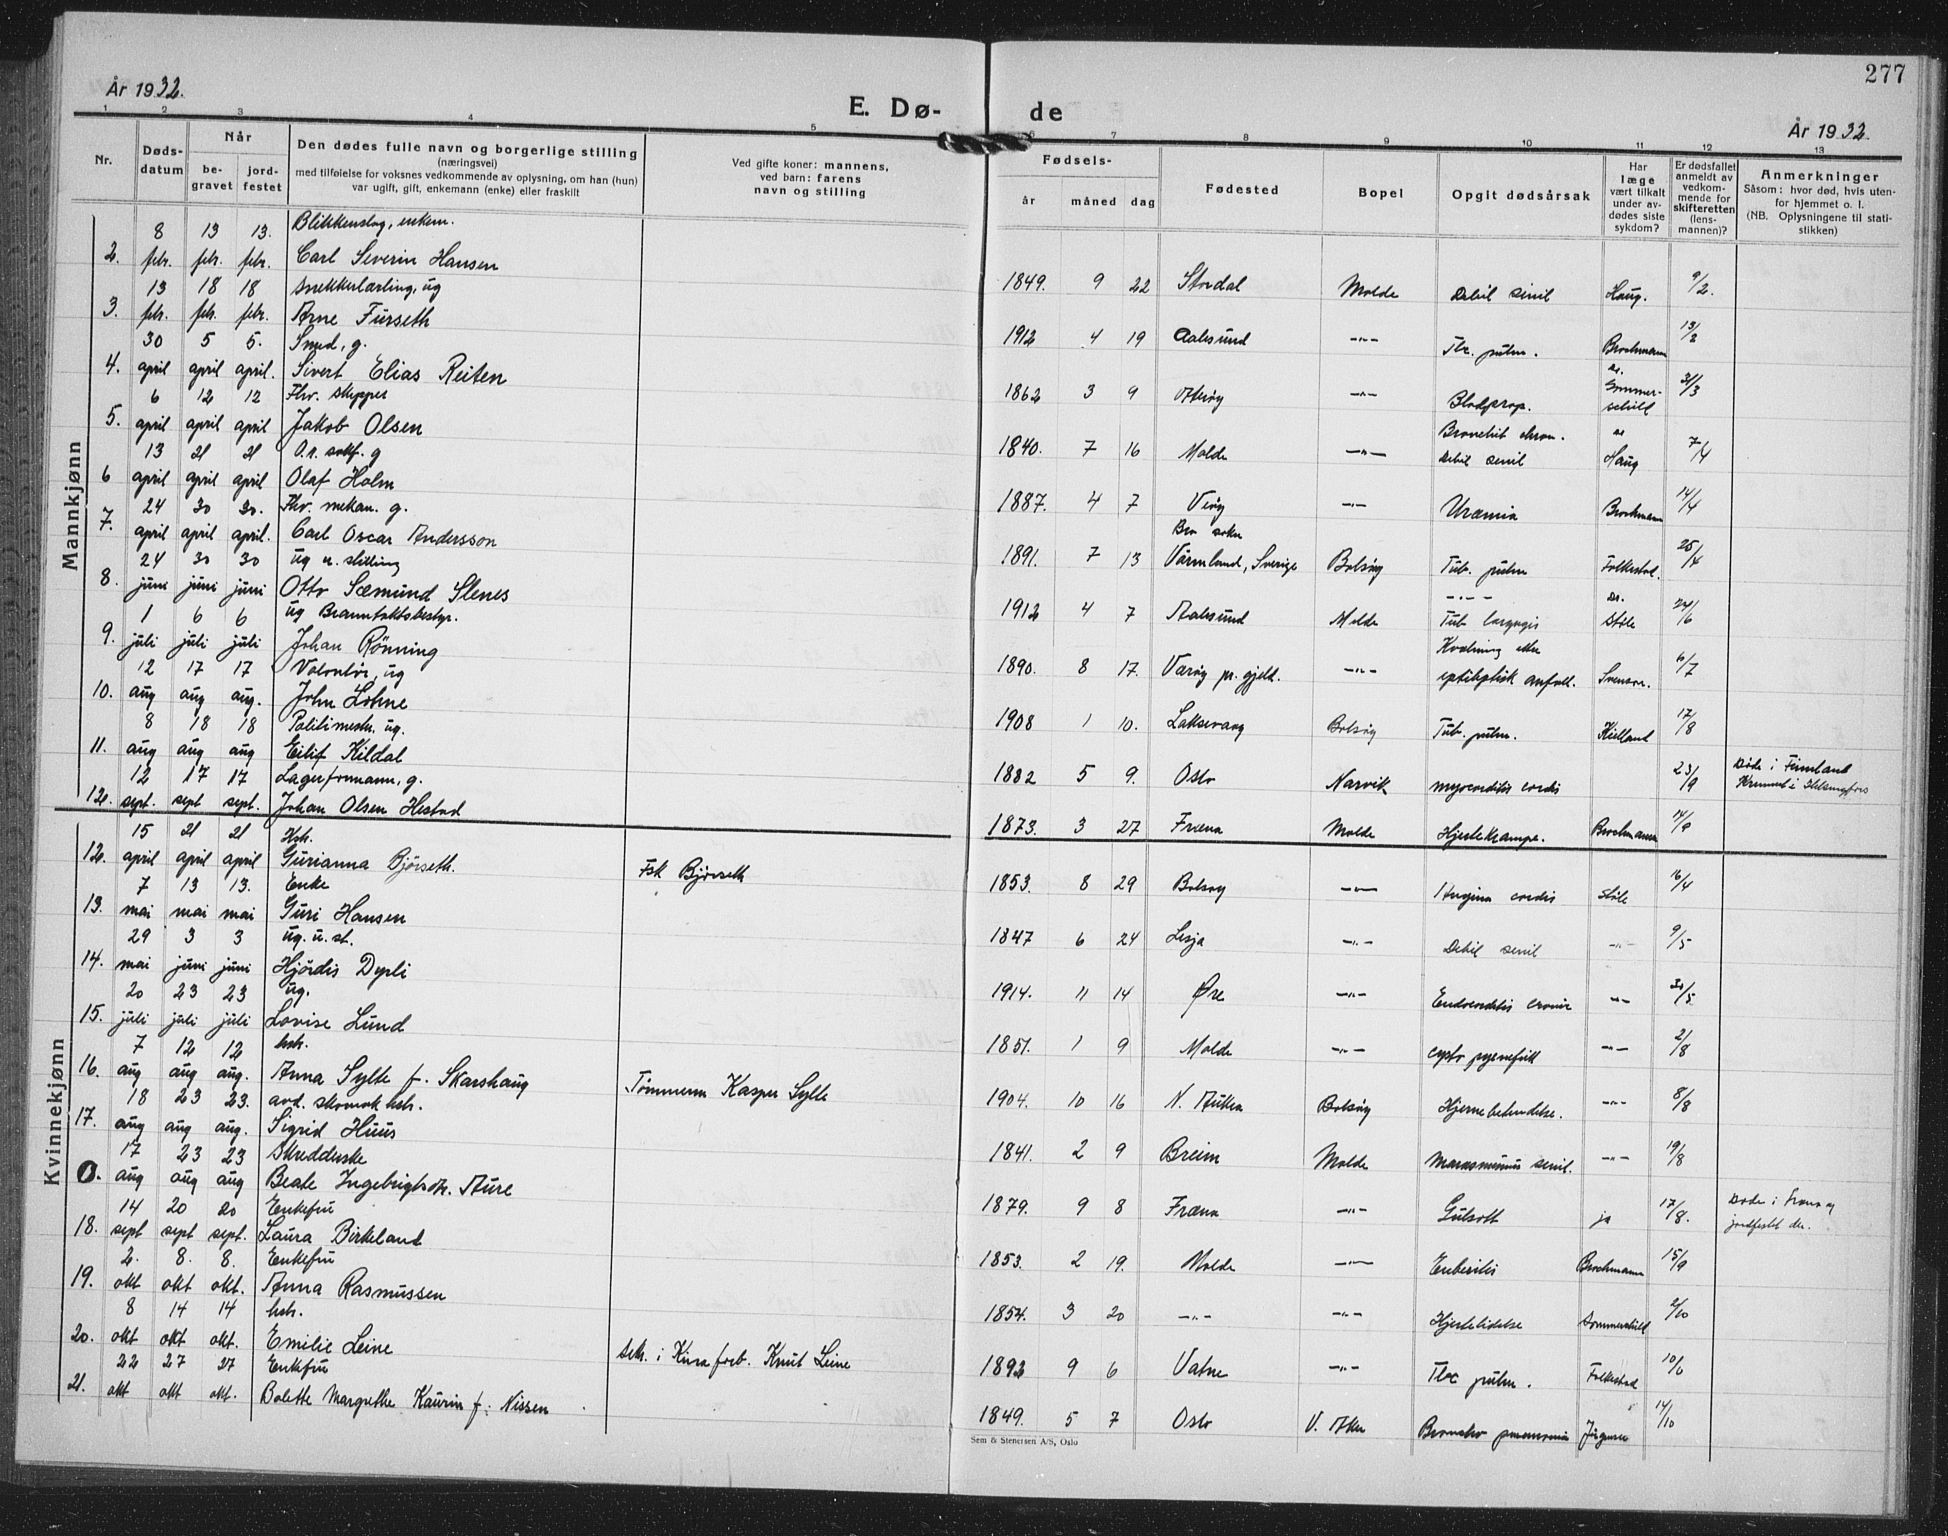 277
År 1932.
E. Dø-
de
År 1932.
1 2 3 4 5 6 7 8 9 10 11 12 13
Nr.
Døds-
datum
Når
be-
gravet
jord-
festet
Den dødes fulle navn og borgerlige stilling
(næringsvei)
med tilføielse for voksnes vedkommende av oplysning, om han (hun)
var ugift, gift, enkemann (enke) eller fraskilt
Ved gifte koner: mannens,
ved barn: farens
navn og stilling
Fødsels-
år måned dag
Fødested
Bopel
Opgit dødsårsak
Har
læge
vært tilkalt
under av-
dødes siste
sykdom?
Er dødsfallet
anmeldt av
vedkom-
mende for
skifteretten
(lens-
mannen)?
Anmerkninger
Såsom: hvor død, hvis uten-
for hjemmet o. l.
(NB. Oplysningene til stati-
stikken)
Mannkjønn
8 13 13. Blikkenslag, enkem.
2. febr. febr. febr. Carl Severin Hansen
1849. 9 22 Stordal Molde Debil senil Haug. 9/2.
13 18 18 Snekkerlærling, ug
3. febr. febr. febr. Arne Furseth
1912 4 19 Aalesund -"- Tbc. pulm. Brochmann 13/2
30 5 5. Smed, g.
4. april april april. Sivert Elias Reiten
1862 3 9 Otrøy -"- Blodprop. dr. Sommer-
schild 31/3
6 12 12 Fhv. skipper
5. april april april Jakob Olsen
1840. 7 16 Molde -"- Bronchit chron.
Debil senil Haug 7/4
13 21 21 O.r. sakf. g
6 april april april Olaf Holm
1887. 4 7 Verøy -"- Uræmia Brochmann 14/4
24 30 30. Fhv. mekan. g.
7. april april april. Carl Oscar Andersson
1891. 7 13 Bro sokn
Värmland, Sverige Bolsøy Tub. pulm Folkestad. 25/4
24 30 30 ug u. stilling
8. juni juni juni Otto Sæmund Slenes
1912 4 7 Aalesund Molde -"-
Tub laryngis Dr.
Støle 24/6
1 6 6 ug Branntaktsbestyr.
9. juli juli juli Johan Rønning
1890. 8 17. Værøy pr. gjeld. -"- Kvælning etter
epileptisk anfall. Svensson. 6/7
12 17 17 Volontør, ug
10. aug aug aug. John Lohne
1908 1 10. Laksevaag Bolsøy Tub. pulm. Kielland 17/8
8 18 18 Politimester. ug.
11. aug aug aug Eilif Kildal
1882 5 9. Oslo Narvik myocarditis cordis 23/9 Døde i Finnland
Kremert i Helsingfors
12 17 17 Lagerformann, g.
12. sept. sept sept. Johan Olsen Hestad
1873. 3 27 Fræna Molde Hjertekrampe. Brochmann 14/9
Kvinnekjønn
15 21 21 Hstr.
12. april april april Gurianna Bjørseth. Fsk Bjørseth
1853. 8 29 Bolsøy -"- Angina cordis Støle 16/4
7 13 13. Enke
13. mai mai mai Guri Hansen
1847 6 24 Lesja -"- Debil senil -"- 9/5
29 3 3 ug. u. st.
14. mai juni juni Hjørdis Dyrli
1914. 11 14 Øre -"- Endocarditis cronic -"- 30/5
20 23 23 ug.
15. juli juli juli Lovise Lund
1851. 1 9 Molde -"- cysto pyenefrit -"- 2/8
7 12 12 hstr.
16. aug aug aug. Anna Sylte f. Skarshaug Tømmerm Kasper Sylte
1904. 10 16 N. Aukra Bolsøy Hjernebetendelse. -"- 8/8
18 23 23. avd. skomak hstr.
17. aug aug aug. Sigrid Huus
1841. 2 9 Breim Molde Marasmumus senil. -"- 19/8
17 23 23 Skredderske
0. aug aug aug Beate Ingebrigtsdtr. Aure
1879. 9 8 Fræna -"- Gulsott ja 17/8. Døde i Fræna og
jordfestet der.
14 20 20 Enkefru
18. sept sept sept. Laura Birkeland
1853. 2 19. Molde -"- Enteritis Brochmann 15/9
2. 8. 8. Enkefru
19. okt okt okt. Anna Rasmussen
1854. 3 20 -"- -"- Hjertelidelse Sommerschild 2/10
8 14 14 hstr.
20. okt okt okt. Emilie Leine Sekr. i Kinaforb. Knut Leine
1892 9 6 Vatne -"- Tbc pulm. Folkestad 10/10
22 27 27 Enkefru
21. okt okt okt. Bolette Margrethe Kaurin f: Nissen
1849. 5 7 Oslo V. Aker Broncho pneumonia 14/10
Sem & Stenersen A/S, Oslo